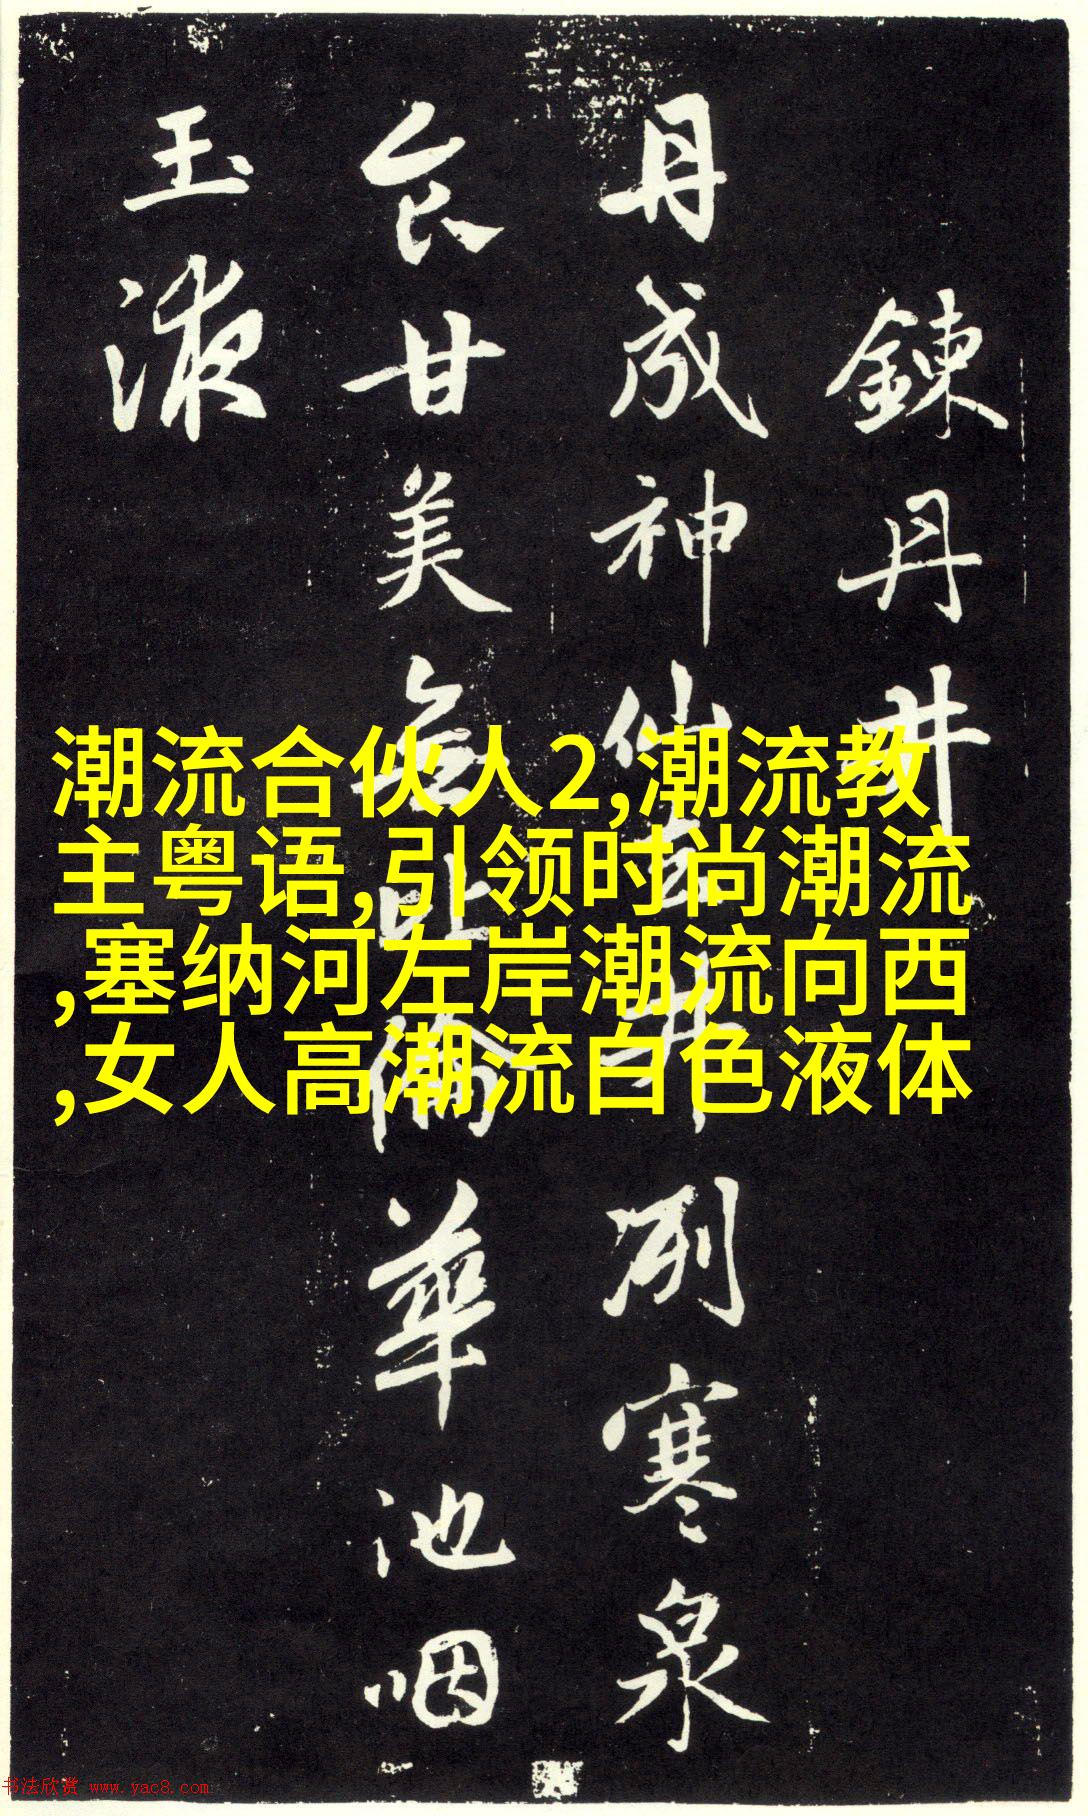 鍊丹井
丹成神仙去井冽寒泉
食甘美無比倫華池咽
玉液
潮流合伙人2,潮流教
主粤语,引领时尚潮流
,塞纳河左岸潮流向西
,女人高潮流白色液体
书法欣赏 www.yac8.com